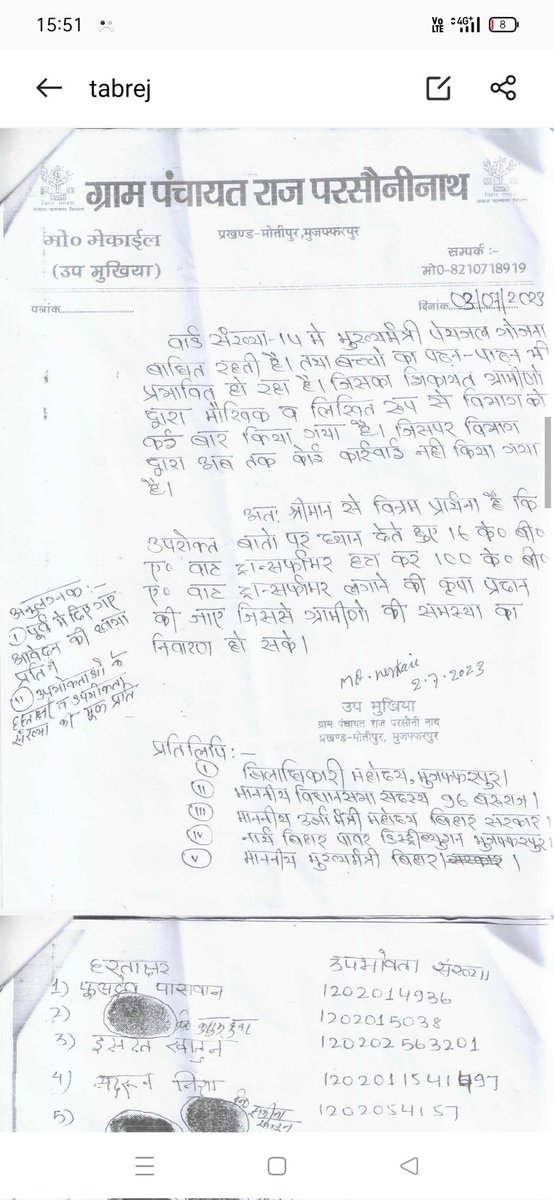 15:51
Vo LTE 4G+ 8
tabrej
ग्राम पंचायत राज परसौनीनाथ
प्रखण्ड-मोतीपुर,मुजफ्फरपुर
मो० मेकाईल
(उप मुखिया)
सम्पर्क :-
मो0-8210718919
पत्रांक
दिनांक 03/07/2023
वार्ड संख्या-14 मे मुख्यमंत्री पेयजल योजना
बाधित रहती है। तथा बच्चों का पठन-पाठन भी
प्रभावित हो रहा है। जिसका शिकायत ग्रामीणो
द्वारा मौखिक व लिखित रूप से विभाग को
कई बार किया गया है। जिसपर विभाग
द्वारा अब तक कोई कार्रवाई नही किया गया
है।
अतः श्रीमान से विनम्र प्रार्थना है कि
उपरोक्त बातो पर ध्यान देते हुए 16 के० बी०
ए० वाट ट्रान्सफॉर्मर हटा कर 100 के० बी०
ए० वाट ट्रान्सफॉर्मर लगाने की कृपा प्रदान
की जाए जिससे ग्रामीणो की समस्या का
निवारण हो सके।
अनुलग्नक:-
(I) पूर्व मे दिए गए
आवेदन की
प्रति
(II) उपभोक्ताओ के
हस्ताक्षर व उपभोक्ता
संख्या की मूल प्रति
2.7.2023
उप मुखिया
ग्राम पंचायत राज परसौनी नाथ
प्रखण्ड-मोतीपुर, मुजफ्फरपुर
प्रतिलिपि:-
(I) जिलाधिकारी महोदय, मुजफ्फरपुर।
(II) माननीय विधानसभा सदस्य 96 बरुराज।
(III) माननीय उर्जा मंत्री महोदय बिहार सरकार।
(IV) नार्थ बिहार पावर डिस्ट्रीब्यूशन मुजफ्फरपुर।
(V) माननीय मुख्यमंत्री बिहार। सरकार।
हस्ताक्षर उपभोक्ता संख्या
1) पासवान 1202014936
2) 1202015038
3) इसरत खातुन 120202563201
4) 1202011541497
5) 1202054157